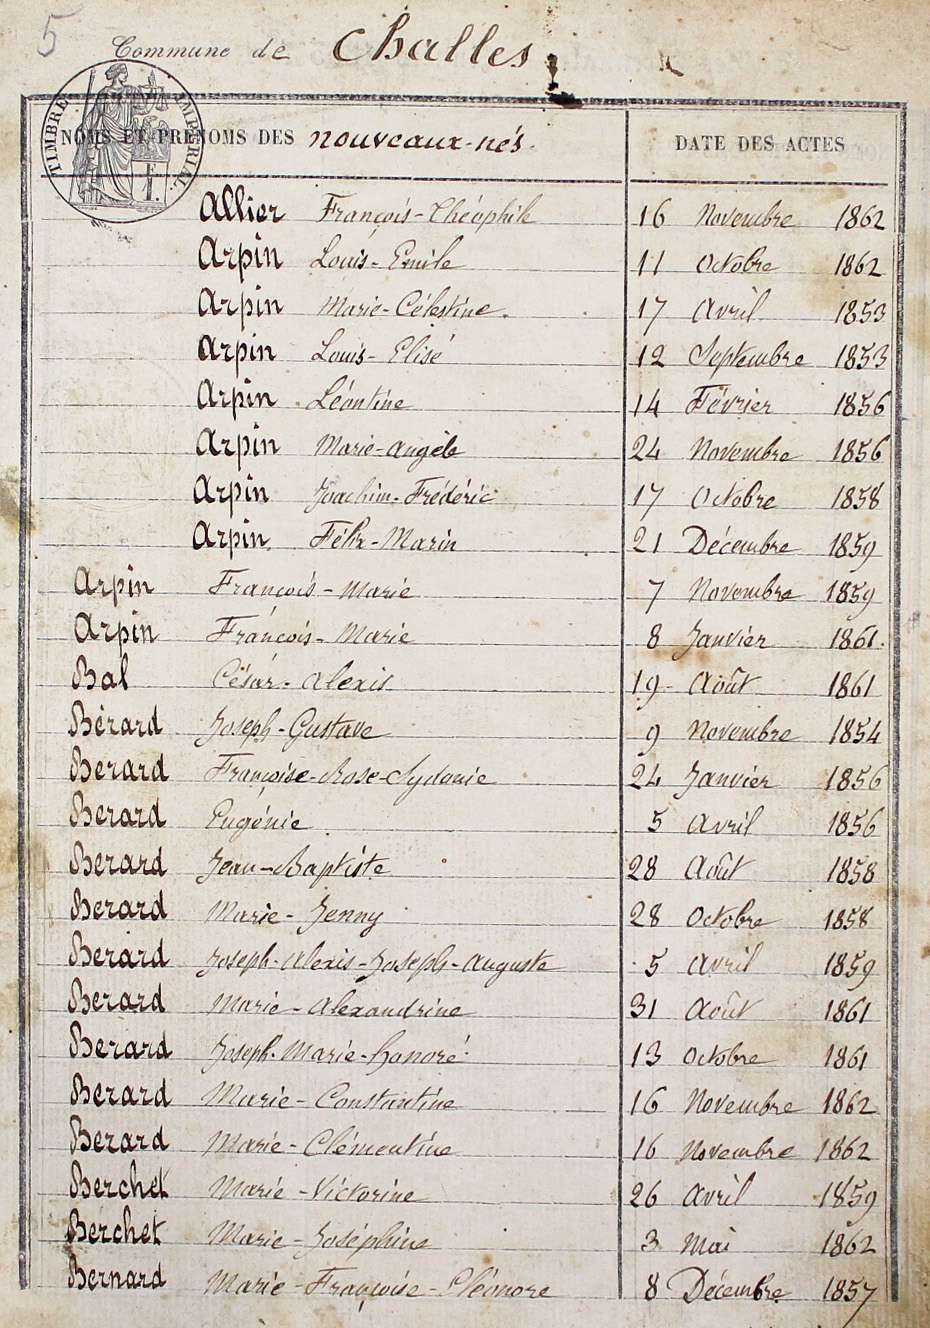 5
Commune de Challes
TIMBRE IMPERIAL
1 F.
NOMS ET PRÉNOMS DES nouveaux-nés. DATE DES ACTES
Allier François-Théophile 16 Novembre 1862
Arpin Louis-Emile 11 Octobre 1862
Arpin Marie-Célestine. 17 Avril 1853
Arpin Louis-Elisé 12 Septembre 1853
Arpin Léontine 14 Février 1856
Arpin Marie-Angèle 24 Novembre 1856
Arpin Joachim-Frédéric 17 Octobre 1858
Arpin Félix-Marin 21 Décembre 1859
Arpin François-Marie 7 Novembre 1859
Arpin François-Marie 8 Janvier 1861.
Bal César-Alexis 19 Août 1861
Bérard Joseph-Gustave 9 Novembre 1854
Berard Françoise-Rose-Sydonie 24 Janvier 1856
Berard Eugénie 5 Avril 1856
Berard Jean-Baptiste 28 Août 1858
Berard Marie-Jenny 28 Octobre 1858
Berard Joseph-Alexis-Joseph-Auguste 5 Avril 1859
Berard Marie-Alexandrine 31 Août 1861
Berard Joseph-Marie-Honoré 13 Octobre 1861
Berard Marie-Constantine 16 Novembre 1862
Berard Marie-Clémentine 16 Novembre 1862
Berchet Marie-Victorine 26 Avril 1859
Berchet Marie-Joséphine 3 Mai 1862
Bernard Marie-Françoise-Eléonore 8 Décembre 1857